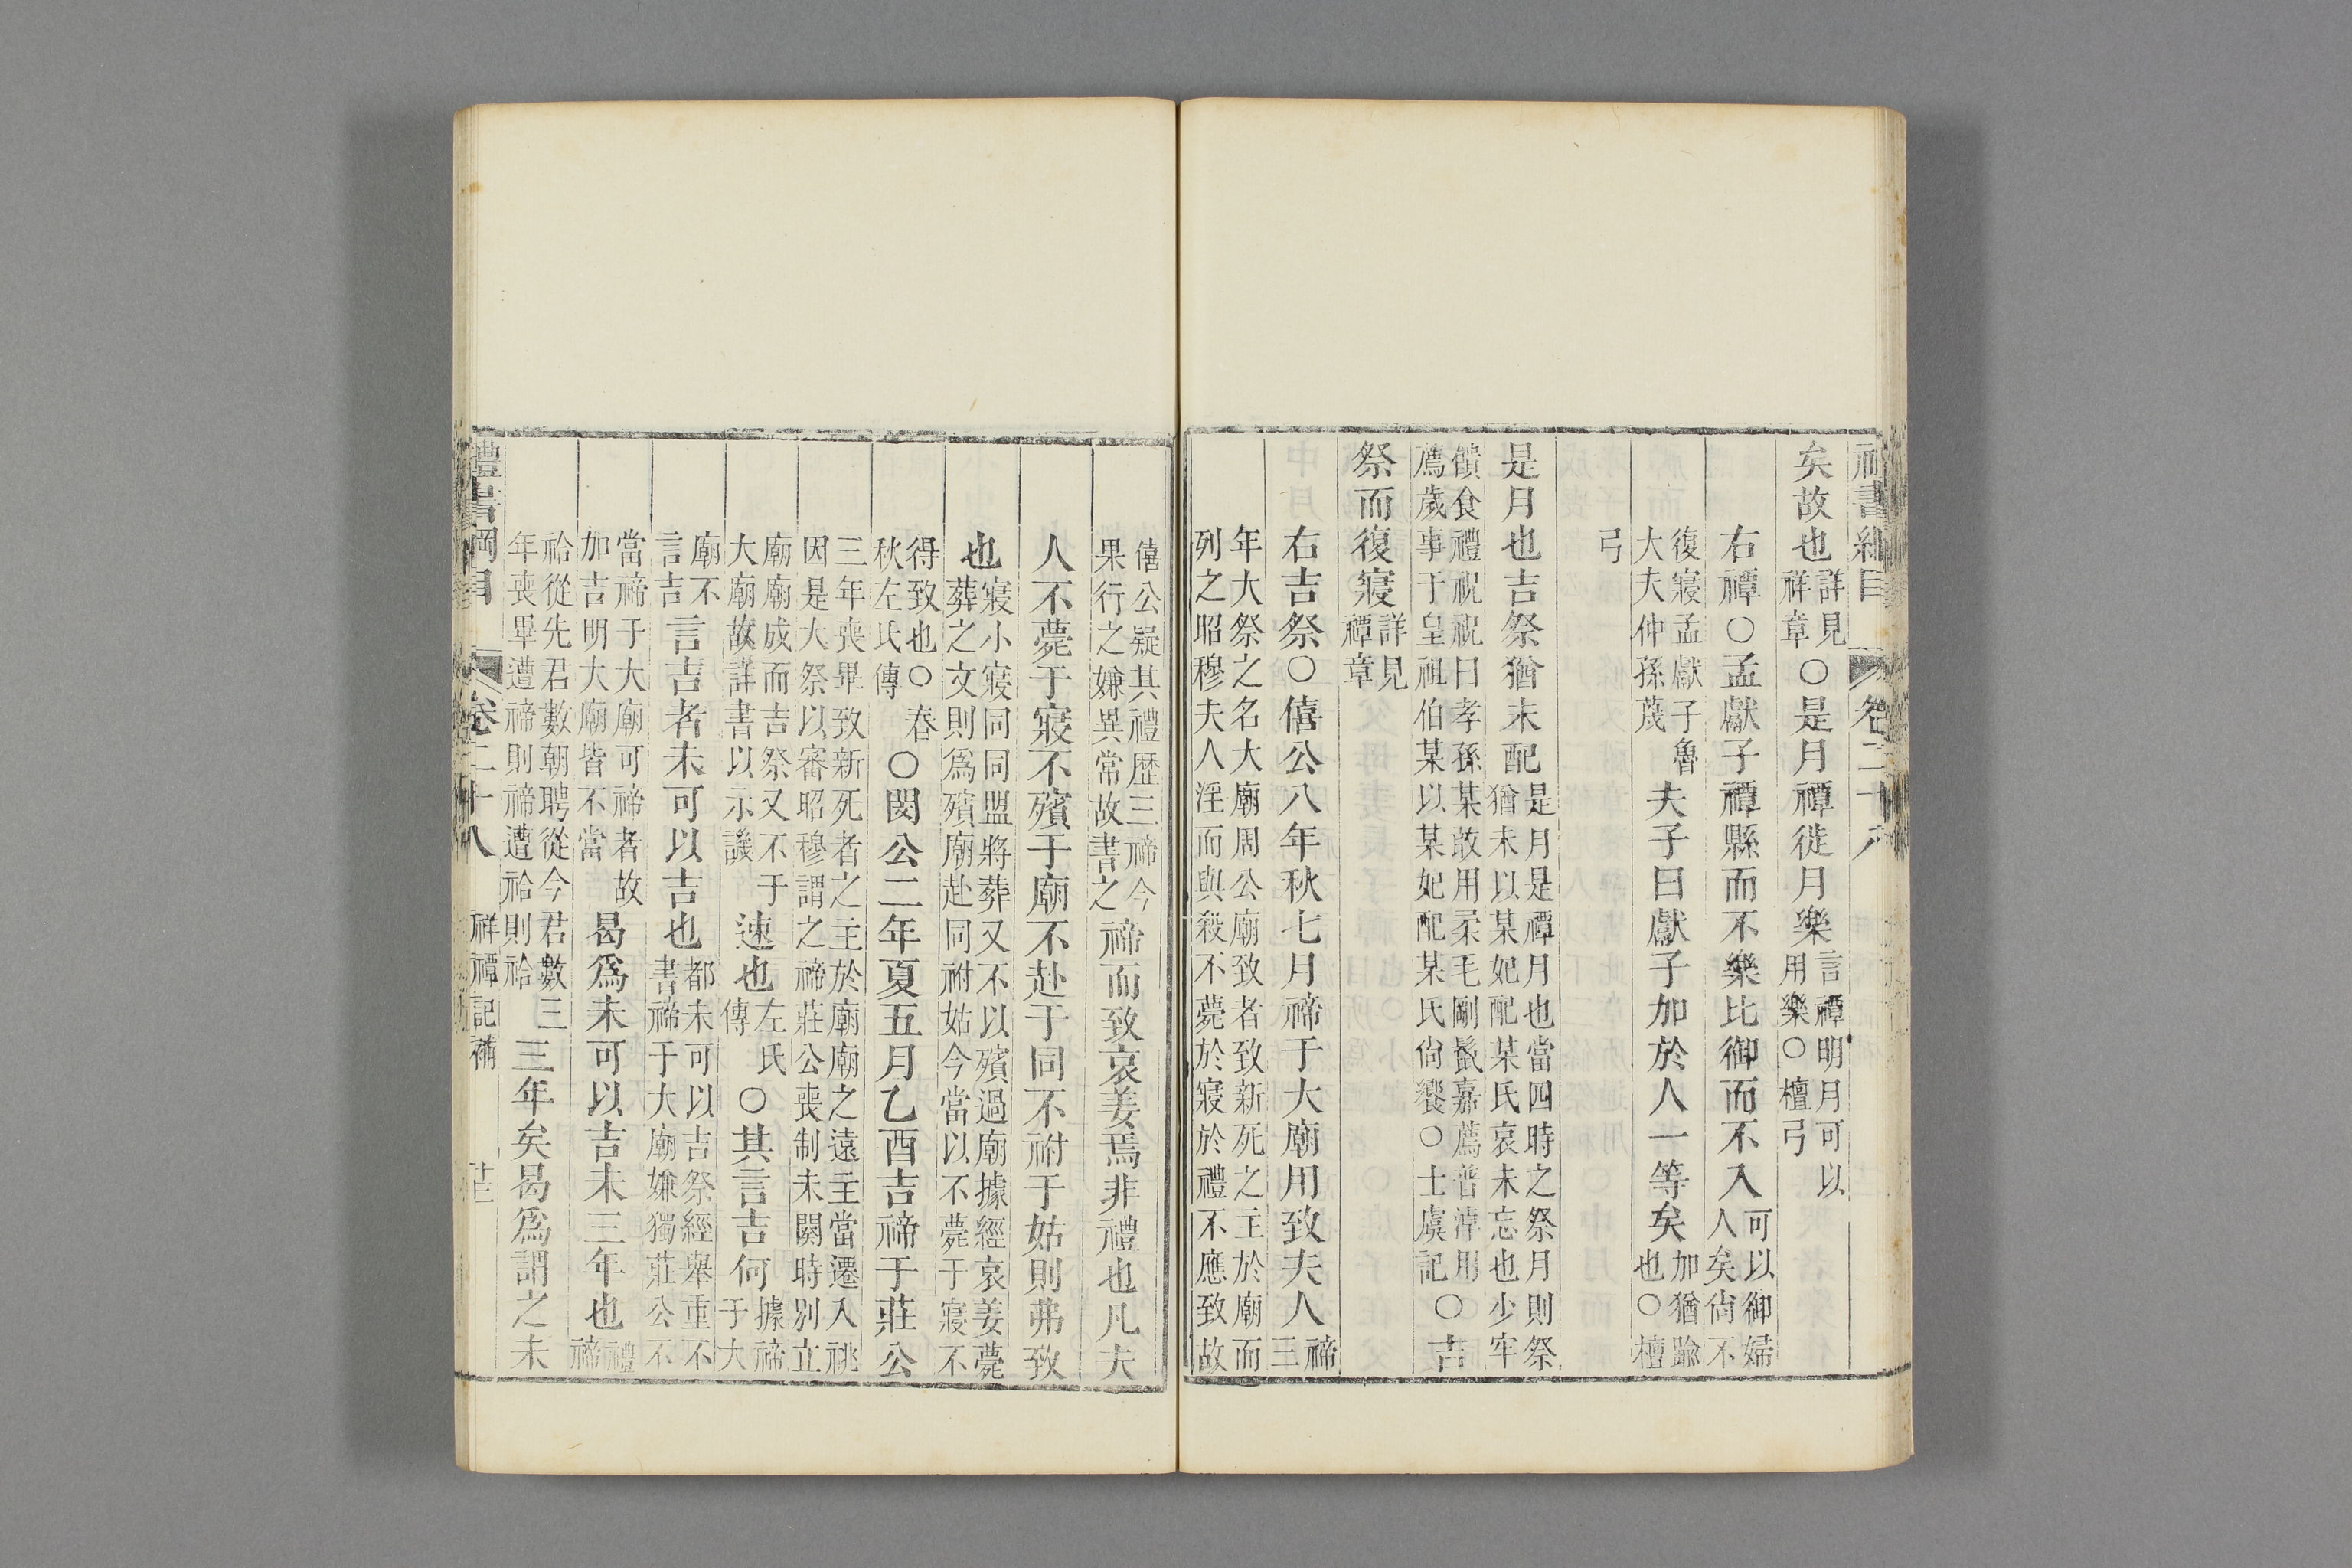 禮書綱目 卷二十八
矣故也詳見祥章○是月禫徙月樂言禫明月可以用樂○檀弓
右禫○孟獻子禫縣而不樂比御而不入可以御婦人矣尚不
復寢孟獻子魯大夫仲孫蔑夫子曰獻子加於人一等矣加猶踰也○檀
弓
是月也吉祭猶未配是月是禫月也當四時之祭月則祭猶未以某妃配某氏哀未忘也少牢
饋食禮祝祝曰孝孫某敢用柔毛剛鬛嘉薦普淖用薦歲事于皇祖伯某以某妃配某氏尚饗○士虞記○吉
祭而復寢詳見禫章
右吉祭○僖公八年秋七月禘于大廟用致夫人禘三
年大祭之名大廟周公廟致者致新死之主於廟而列之昭穆夫人淫而與殺不薨於寢於禮不應致故
僖公疑其禮歷三禘今果行之嫌異常故書之禘而致哀姜焉非禮也凡夫
人不薨于寢不殯于廟不赴于同不祔于姑則弗致
也寢小寢同同盟將葬又不以殯過廟據經哀姜薨葬之文則爲殯廟赴同祔姑今當以不薨于寢不
得致也○春秋左氏傳○閔公二年夏五月乙酉吉禘于莊公
三年喪畢致新死者之主於廟廟之遠主當遷入祧因是大祭以審昭穆謂之禘莊公喪制未闋時別立
廟廟成而吉祭又不于大廟故詳書以示譏速也左氏傳○其言吉何據禘于大
廟不言吉言吉者未可以吉也都未可以吉祭經舉重不書禘于大廟嫌獨莊公不
當禘于大廟可禘者故加吉明大廟皆不當曷爲未可以吉未三年也禮禘
祫從先君數朝聘從今君數三年喪畢遭禘則禘遭祫則祫三年矣曷爲謂之未
禮書綱目 卷二十八 祥禫記補 廿三